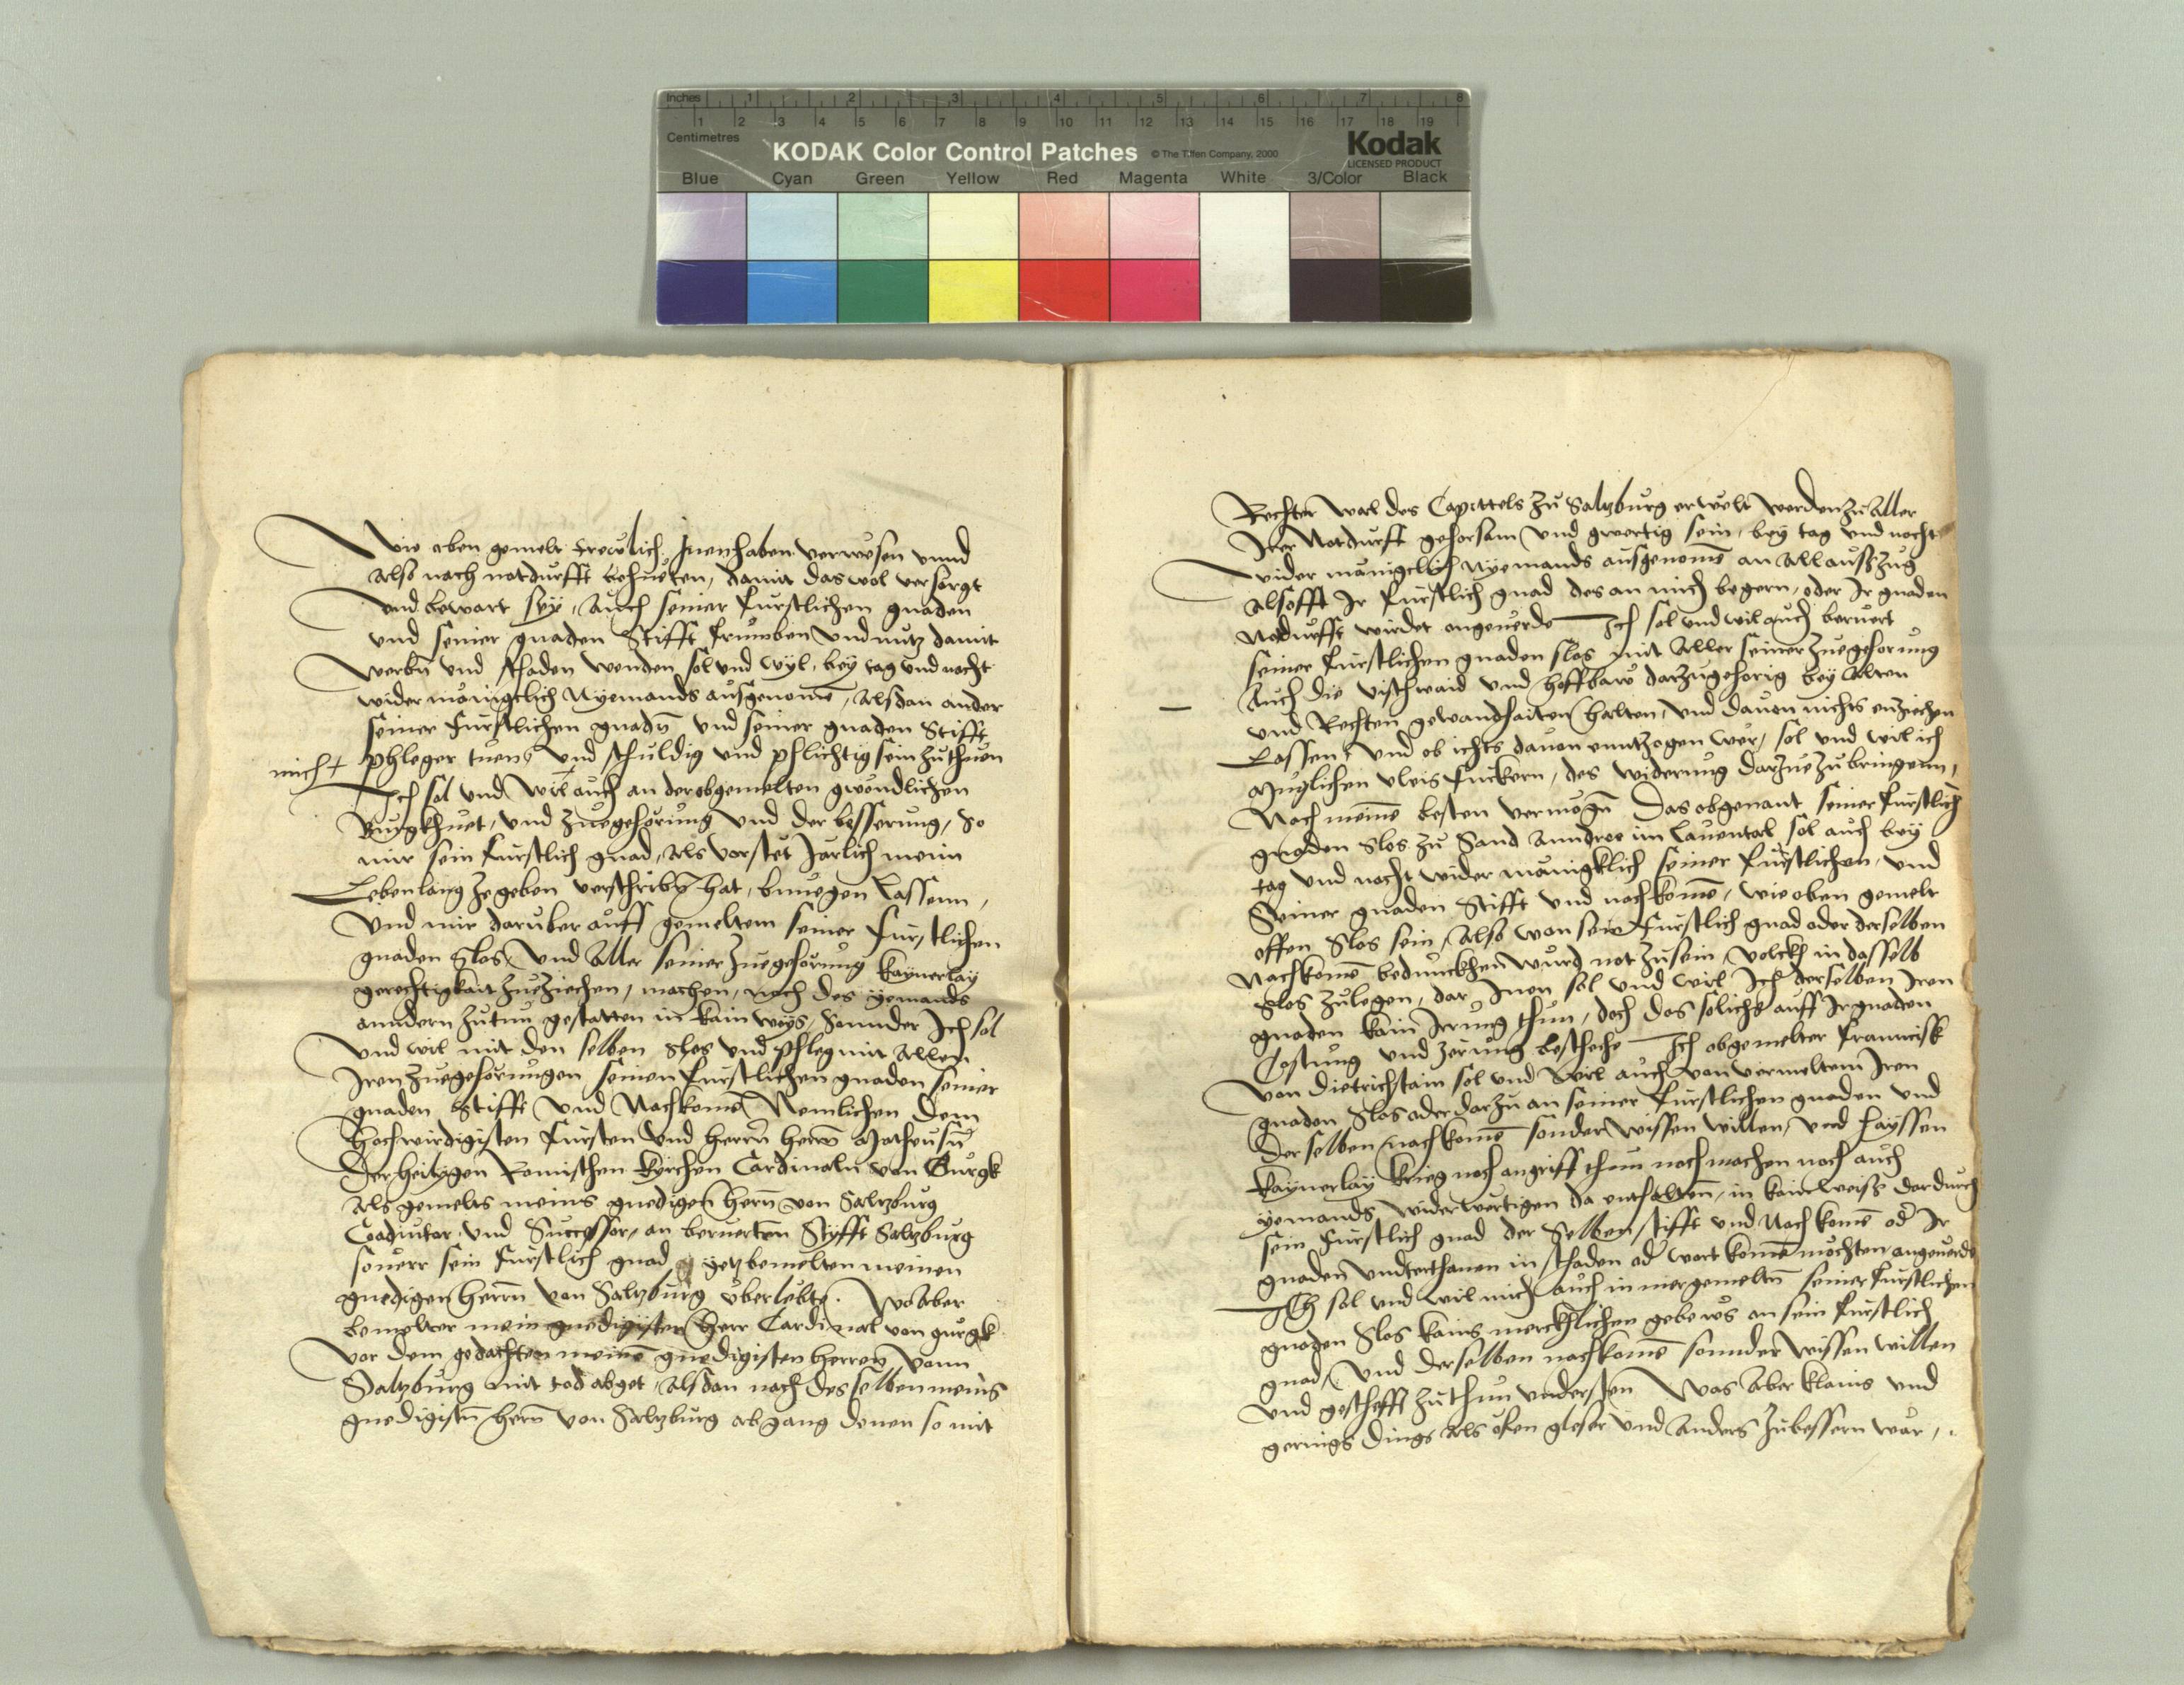 Inches 1 2 3 4 5 6 7 8
1 2 3 4 5 6 7 8 9 10 11 12 13 14 15 16 17 18 19
Centimetres
KODAK Color Control Patches © The Tiffen Company, 2000 Kodak
LICENSED PRODUCT
Blue Cyan Green Yellow Red Magenta White 3/Color Black
Wie oben gemelt trewlich Innenhaben verwesen vnnd
Also nach notdurfft behueten, damit das wol versorgt
vnd bewart sey, Auch seiner Furstlichen gnaden
vnd seiner gnaden Stifft frumben vnd nutz damit
werbn vnd schaden wenden sol vnd wyl, bey tag vnd nacht
wider mänigclich Nyemands ausgenomē, Alsdan ander
seiner Furstlichen gnadn̄ vnd seiner gnaden Stifft
mich + phleger tuens vnd schuldig vnd phlichtig sein zuthuen
Ich sol vnd wil auch an der obgemelten gwondlichen
Burgkhuet, vnd zuegehörung vnd der besserung, So
mir sein Furstlich gnad, Als vorstet Järlich mein
Lebenlang zegeben verschribn̄ hat, benuegen Lassenn,
Vnd mir daruber auff gemeltem seiner Furstlichen
gnaden Slos, vnd Aller seiner zuegehörung kaynerlay
gerechtigkait zueziechen, machen, noch des yemands
anndern zutun gestatten in kain weys, Sonnder Ich sol
vnd wil mit den selben Slos vnd phleg mit Allen
Iren zuegehörungen seinen Furstlichen gnaden seiner
gnaden Stifft vnd Nachkomē Nemlichen dem
hochwirdigisten Fursten vnd herrn̄ herrn̄ Matheusn̄
Der heiligen Romischen kyrchen Cardinaln von Gurgk
Als gemelts meins gnedigen herrn̄ von Saltzburg
Coadiutor vnd Successor, an beruerten Stifft Saltzburg
souerr sein Furstlich gnad yetzbemelten meinen
gnedigen herrn̄ von Saltzburg vberlebte. Wo Aber
bemelter mein gnedigister herr Cardinal von gurgk
vor dem gedachten meinē gnedigisten herren vonn
Saltzburg mit tod abget, Alsdan nach desselben meins
gnedigistn̄ herrn̄ von Saltzburg abgang denen so mit
Rechter wal des Capittels zu Saltzburg erwelt werden zu Aller
Irer Notdurfft gehorsam vnd gwertig sein, bey tag vnd nacht
wider mänigclich Nyemands ausgenomē an All auszug
Alsofft Ir Furstlich gnad des an mich begern, oder Ir gnaden
Nodurfft wirdet angeuerde Ich sol vnd wil auch beruert
seiner Furstlichen gnaden slos mit Aller seiner zuegehorung
Auch die vischwaid vnd hoffbaw darzugehorig bey Alten
vnd Rechten gewandhaiten halten, vnd dauon nichts enziechen
Lassen, vnd ob ichts dauon enntzogen wer, sol vnd wil ich
Muglichen vleis furkern, des widerumb darzue zubringenn,
Nach meinē besten vermogn̄ Das obgenant seiner Furstlich
gnaden Slos zu Sand Anndree im Lauental sol auch bey
tag vnd nacht wider mänigklich seiner Furstlichen, vnd
Seiner gnaden Stifft vnd nachkomē, wie oben gemelt
offen Slos sein, Also wan sein Furstlich gnad oder derselben
Nachkomē beduncken wurd not zusein, volckh in dasselb
Slos zulegen, dar Inen sol vnd wil Ich derselben Iren
gnaden kain Irrung thun, doch das solichs auff Ir gnaden
Costung vnd zerung bescheche Ich obgemelter Francisk
von Dietrichstain sol vnd wil auch von vermeltem Iren
gnaden Slos oder darzu an seiner Furstlichen gnaden vnd
Derselben nachkomē sonder wissen willen, vnd haissen
kaynerlay krieg noch angriff thun noch machen noch auch
yemands widerwertigen da enthaltenn̄, in kain weiss dardurch
sein Furstlich gnad der Selben stifft vnd Nachkomē od' Ir
gnaden vndterthanen in schaden od' wort komē mochten angeuerde
Ich sol vnd wil mich auch in mergemeltn̄ seiner Furstlichen
gnaden Slos kains mercklichen gebews an sein Furstlich
gnad, vnd derselben nachkomē sonnder wissen willen
vnd geschefft zuthun vndersten Was Aber klains vnd
gerings dings als ofen gleser vnd anders zubessern wär,